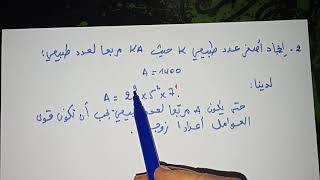 2. إيجاد أصغر عدد طبيعي K حيث KA مربعا لعدد طبيعي:
A = 1400
لدينا:
A = 2³ × 5² × 7¹
حتى يكون A مربعا لعدد طبيعي يجب أن تكون قوى
العوامل أعدادا زوجية.